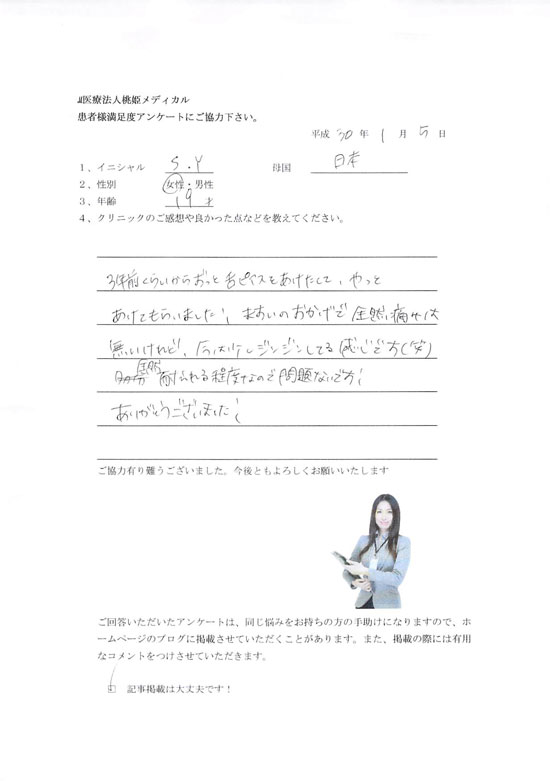 医療法人桃姫メディカル
患者様満足度アンケートにご協力下さい。
平成 30 年 1 月 5 日
1、イニシャル S.Y 母国 日本
2、性別 女性・男性
3、年齢 19 才
4、クリニックのご感想や良かった点などを教えてください。
3年前くらいからずっと舌ピアスをあけたくて、やっと
あけてもらいました! ますいのおかげで全然痛みは
無いけれど、今は少しジンジンしてる感じです(笑)
全然耐えれる程度なので問題ないです!
ありがとうございました!
ご協力有り難うございました。今後ともよろしくお願いいたします
ご回答いただいたアンケートは、同じ悩みをお持ちの方の手助けになりますので、ホ
ームページのブログに掲載させていただくことがあります。また、掲載の際には有用
なコメントをつけさせていただきます。
記事掲載は大丈夫です!